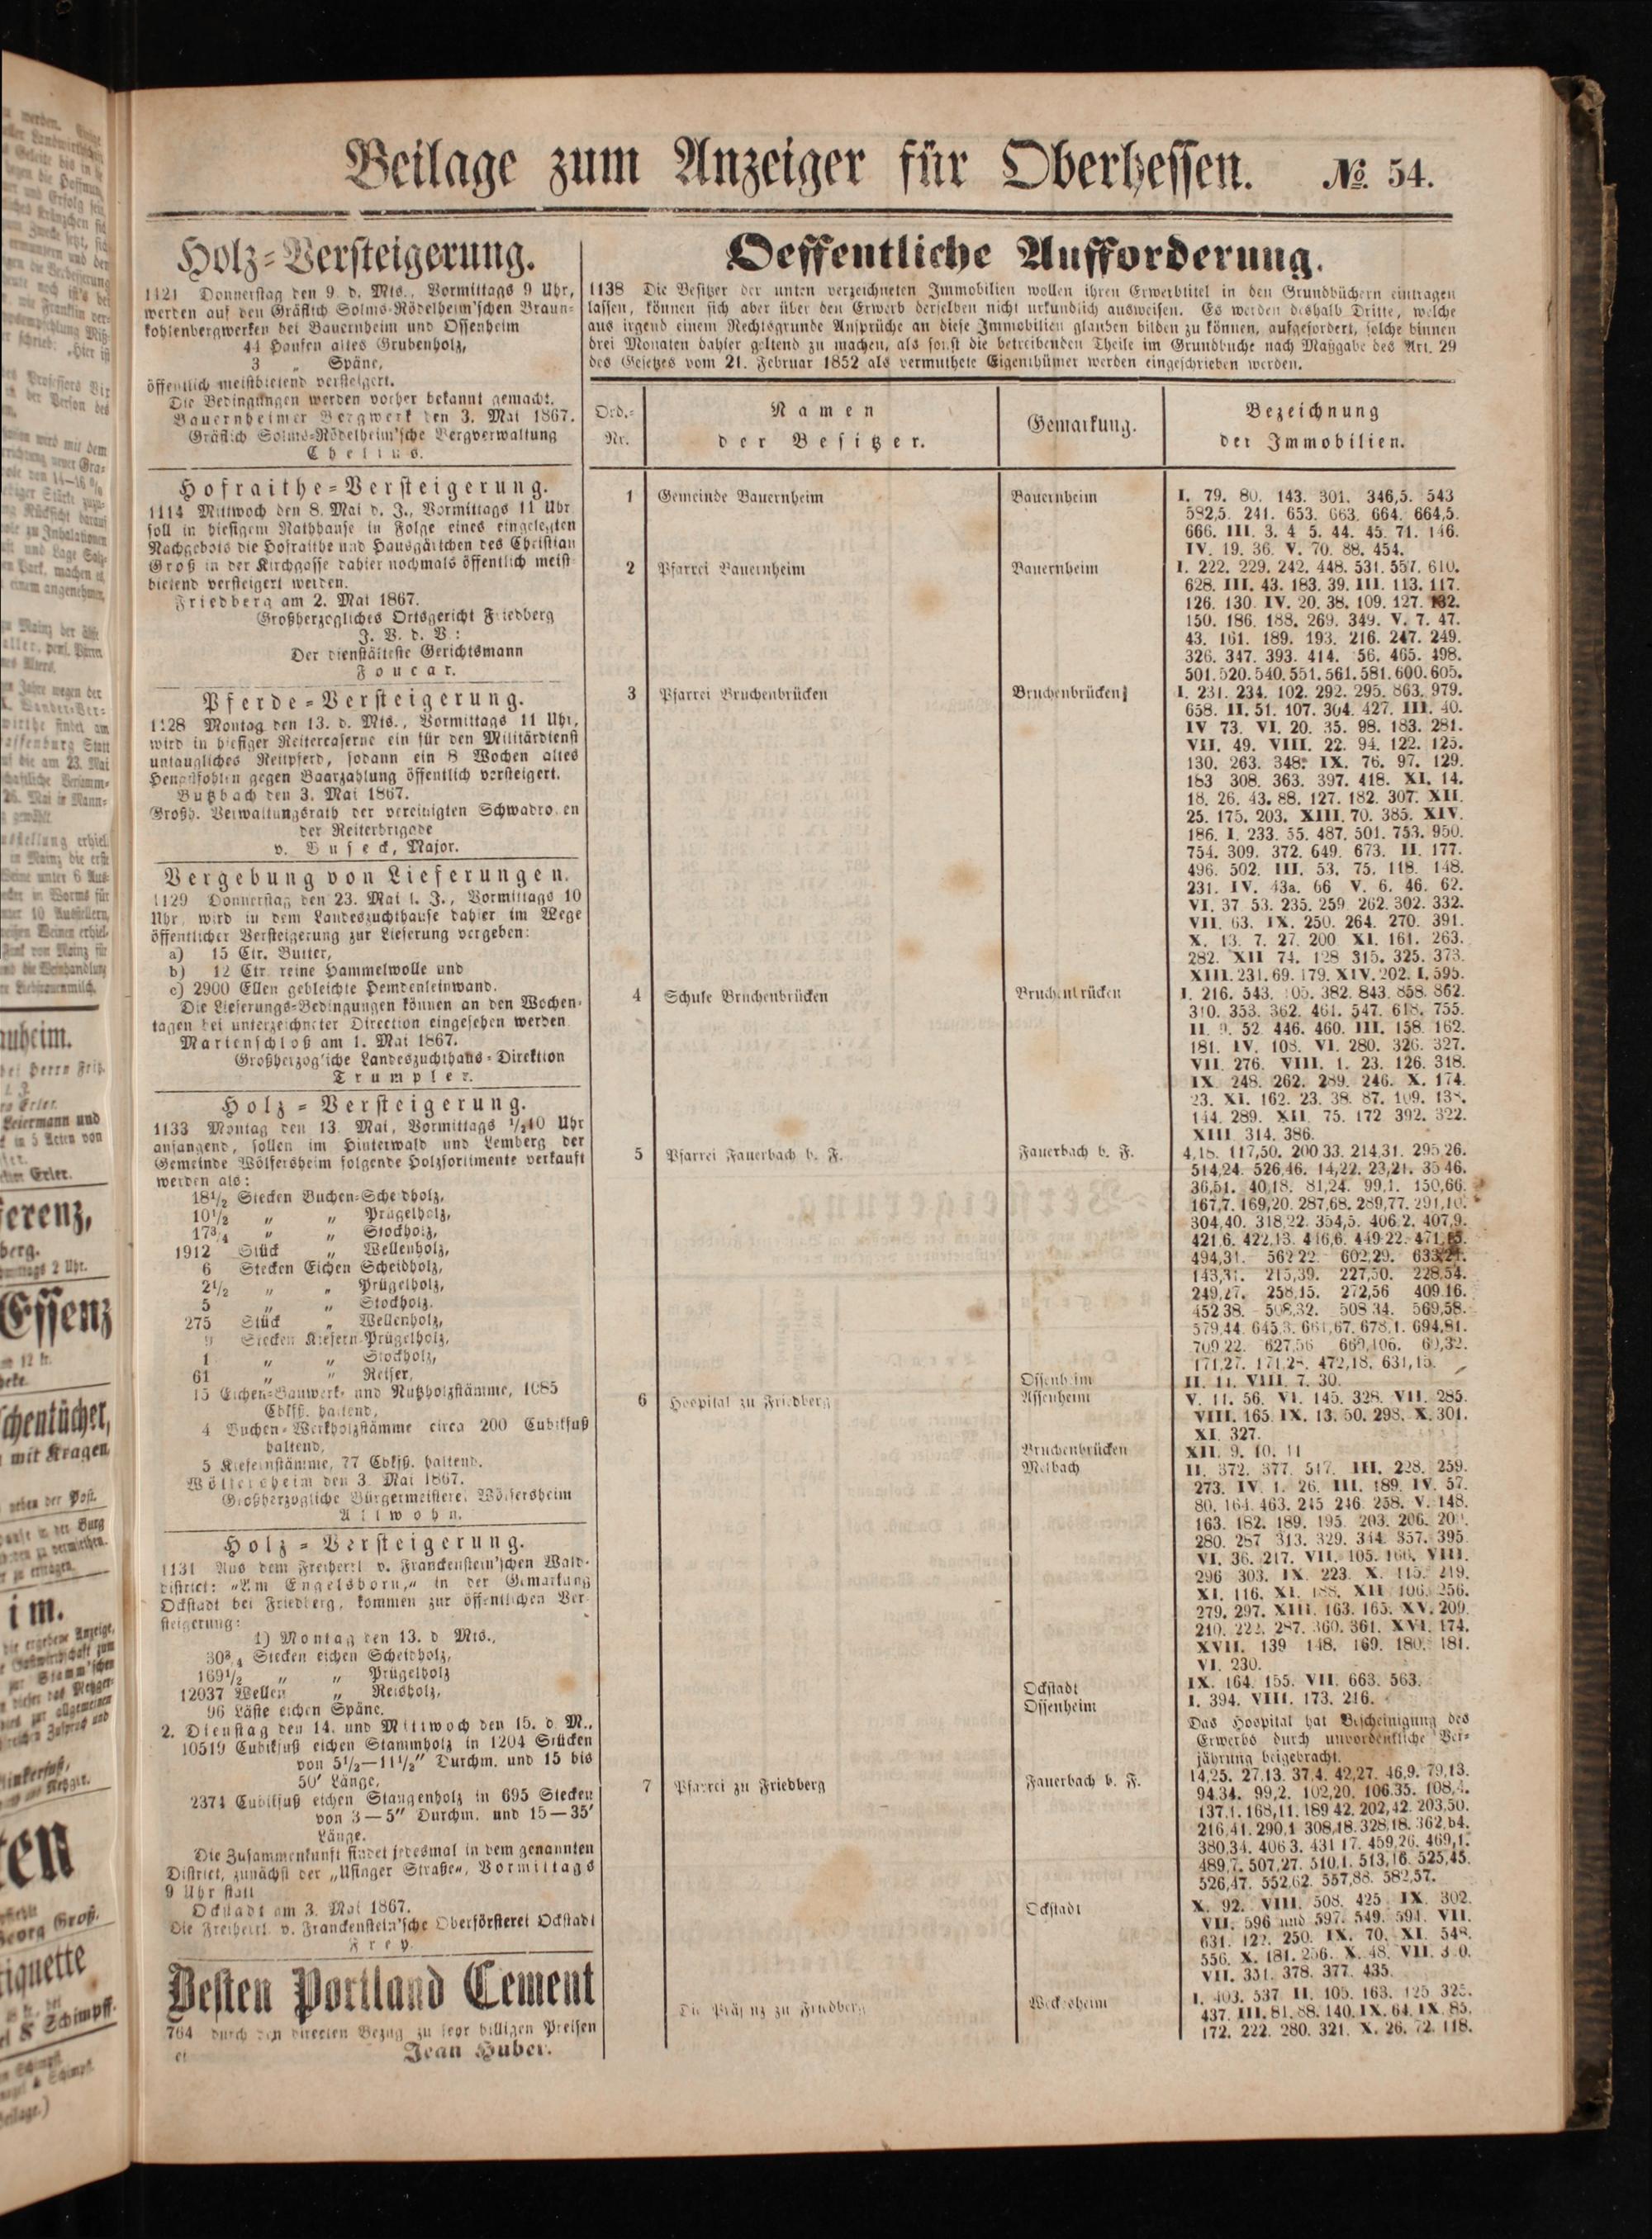 Beilage zum Anzeiger für Oberhessen. № 54.
Holz-Versteigerung.
1121 Donnerstag den 9. d. Mts., Vormittags 9 Uhr,
werden auf den Gräflich Solms-Rödelheim'schen Braun-
kohlenbergwerken bei Bauernheim und Ossenheim
44 Haufen altes Grubenholz,
3 „ Späne,
öffentlich meistbietend versteigert.
Die Bedingungen werden vorher bekannt gemacht.
Bauernheimer Bergwerk den 3. Mai 1867.
Gräflich Solms-Rödelheim'sche Bergverwaltung
Chelius.
Hofraithe-Versteigerung.
1114 Mittwoch den 8. Mai d. J., Vormittags 11 Uhr
soll in hiesigem Rathhause in Folge eines eingelegten
Nachgebots die Hofraithe und Hausgärtchen des Christian
Groß in der Kirchgasse dahier nochmals öffentlich meist-
bietend versteigert werden.
Friedberg am 2. Mai 1867.
Großherzogliches Ortsgericht Friedberg
J. V. d. V.:
Der dienstälteste Gerichtsmann
Foucar.
Pferde-Versteigerung.
1128 Montag den 13. d. Mts., Vormittags 11 Uhr,
wird in hiesiger Reitercaserne ein für den Militärdienst
untaugliches Reitpferd, sodann ein 8 Wochen altes
Hengstfohlen gegen Baarzahlung öffentlich versteigert.
Butzbach den 3. Mai 1867.
Großh. Verwaltungsrath der vereinigten Schwadronen
der Reiterbrigade
v. Buseck, Major.
Vergebung von Lieferungen.
1129 Donnerstag den 23. Mai l. J., Vormittags 10
Uhr, wird in dem Landeszuchthause dahier im Wege
öffentlicher Versteigerung zur Lieferung vergeben:
a) 15 Ctr. Butter,
b) 12 Ctr. reine Hammelwolle und
c) 2900 Ellen gebleichte Hemdenleinwand.
Die Lieferungs-Bedingungen können an den Wochen-
tagen bei unterzeichneter Direction eingesehen werden
Marienschloß am 1. Mai 1867.
Großherzog'iche Landeszuchthaus-Direktion
Trumpler.
Holz-Versteigerung.
1133 Montag den 13. Mai, Vormittags ½10 Uhr
anfangend, sollen im Hinterwald und Lemberg der
Gemeinde Wölfersheim folgende Holzsortimente verkauft
werden als:
18½ Stecken Buchen-Scheidholz,
10½ „ „ Prügelholz,
17¾ „ „ Stockholz,
1912 Stück „ Wellenholz,
6 Stecken Eichen Scheidholz,
2½ „ „ Prügelholz,
5 „ „ Stockholz.
275 Stück „ Wellenholz,
9 Stecken Kiefern-Prügelholz,
1 „ „ Stockholz,
61 „ „ Reiser,
15 Eichen-Bauwerk- und Nutzholzstämme, 1085
Cbkfß. haltend,
4 Buchen-Werkholzstämme circa 200 Cubikfuß
haltend,
5 Kiefernstämme, 77 Cbkfß. haltend.
Wölfersheim den 3. Mai 1867.
Großherzogliche Bürgermeisterei Wölfersheim
Altwohn.
Holz-Versteigerung.
1131 Aus dem Freiherrl. v. Franckenstein'schen Wald-
district: „Am Engelsborn,“ in der Gemarkung
Ockstadt bei Friedberg, kommen zur öffentlichen Ver-
steigerung:
1) Montag den 13. d Mts.,
30¾ Stecken eichen Scheidholz,
169½ „ „ Prügelholz
12037 Wellen „ Reisholz,
96 Läste eichen Späne.
2. Dienstag den 14. und Mittwoch den 15. d. M.,
10519 Cubikfuß eichen Stammholz in 1204 Stücken
von 5½—11½" Durchm. und 15 bis
50' Länge,
2374 Cubikfuß eichen Stangenholz in 695 Stecken
von 3—5" Durchm. und 15—35'
Länge.
Die Zusammenkunft findet jedesmal in dem genannten
District, zunächst der „Usinger Straße“, Vormittags
9 Uhr statt
Ockstadt am 3. Mai 1867.
Die Freiherrl. v. Franckenstein'sche Oberförsterei Ockstadt
Frey.
Besten Portland Cement
764 durch den directen Bezug zu sehr billigen Preisen
Jean Huber.
Oeffentliche Aufforderung.
1138 Die Besitzer der unten verzeichneten Immobilien wollen ihren Erwerbtitel in den Grundbüchern eintragen
lassen, können sich aber über den Erwerb derselben nicht urkundlich ausweisen. Es werden deshalb Dritte, welche
aus irgend einem Rechtsgrunde Ansprüche an diese Immobilien glauben bilden zu können, aufgefordert, solche binnen
drei Monaten dahier geltend zu machen, als sonst die betreibenden Theile im Grundbuche nach Maßgabe des Art. 29
des Gesetzes vom 21. Februar 1852 als vermuthete Eigenthümer werden eingeschrieben werden.
Ord.- Nr.
Namen der Besitzer.
Gemarkung.
Bezeichnung der Immobilien.
1 Gemeinde Bauernheim Bauernheim I. 79. 80. 143. 301. 346,5. 543
582,5. 241. 653. 663. 664. 664,5.
666. III. 3. 4 5. 44. 45. 71. 146.
IV. 19. 36. V. 70. 88. 454.
2 Pfarrei Bauernheim Bauernheim I. 222. 229. 242. 448. 531. 557. 610.
628. III. 43. 183. 39. III. 113. 117.
126. 130. IV. 20. 38. 109. 127. 132.
150. 186. 188. 269. 349. V. 7. 47.
43. 161. 189. 193. 216. 247. 249.
326. 347. 393. 414. 56. 465. 498.
501. 520. 540. 551. 561. 581. 600. 605.
3 Pfarrei Bruchenbrücken Bruchenbrücken I. 231. 234. 102. 292. 295. 863. 979.
658. II. 51. 107. 304. 427. III. 40.
IV 73. VI. 20. 35. 98. 183. 281.
VII. 49. VIII. 22. 94. 122. 125.
130. 263. 348. IX. 76. 97. 129.
183 308. 363. 397. 418. XI. 14.
18. 26. 43. 88. 127. 182. 307. XII.
25. 175. 203. XIII. 70. 385. XIV.
186. I. 233. 55. 487. 501. 753. 950.
754. 309. 372. 649. 673. II. 177.
496. 502. III. 53. 75. 118. 148.
231. IV. 43a. 66 V. 6. 46. 62.
VI. 37 53. 235. 259 262. 302. 332.
VII. 63. IX. 250. 264. 270. 391.
X. 13. 7. 27. 200 XI. 161. 263.
282. XII 74. 128 315. 325. 373.
XIII. 231. 69. 179. XIV. 202. I. 595.
4 Schule Bruchenbrücken Bruchenbrücken I. 216. 543. 105. 382. 843. 858. 862.
310. 353. 362. 461. 547. 618. 755.
II. 9. 52 446. 460. III. 158. 162.
181. IV. 108. VI. 280. 326. 327.
VII. 276. VIII. 1. 23. 126. 318.
IX 248. 262. 289. 246. X. 174.
23. XI. 162. 23. 38. 87. 109. 138.
144. 289. XII. 75. 172 392. 322.
XIII 314. 386.
5 Pfarrei Fauerbach b. F. Fauerbach b. F. 4,18. 117,50. 200 33. 214,31. 295 26.
514,24. 526,46. 14,22. 23,21. 35 46.
36,51. 40,18. 81,24. 99,1. 150,66.
167,7. 169,20. 287,68. 289,77. 291,10.
304,40. 318,22. 354,5. 406 2. 407,9.
421,6. 422,13. 416,6. 449 22.
494,31. 562 22. 602,29.
143,31. 215,39. 227,50. 228,54.
249,27. 258,15. 272,56 409 16.
452 38. 508,32. 508 34. 569,58.
579,44. 645,3. 661,67. 678,1. 694,81.
709 22. 627,56 669,106. 60,32.
171,27. 171,28. 472,18. 631,15.
Ossenheim II. 11. VIII. 7. 30.
6 Hospital zu Friedberg Assenheim V. 11. 56. VI. 145. 328. VII. 285.
VIII. 165. IX. 13. 50. 298. X. 301.
XI. 327.
Bruchenbrücken XII. 9. 10. 11
Melbach II. 372. 377. 517. III. 228. 259.
273. IV. 1. 26. III. 189. IV. 57.
80. 164. 463. 245 246. 258. V. 148.
163. 182. 189. 195. 203. 206.
280. 287 313. 329. 344. 357. 395.
VI. 36. 217. VII. 105. 166. VIII.
296 303. IX. 223. X. 115. 219.
XI. 116. XI. 188. XII 106. 256.
279. 297. XIII. 163. 165. XV. 209.
210. 222. 287. 360. 361. XVI. 174.
XVII. 139 148. 169. 180. 181.
VI. 230.
Ockstadt IX. 164. 155. VII. 663. 563.
Ossenheim I. 394. VIII. 173. 216.
Das Hospital hat Bescheinigung des
Erwerbs durch unvordenkliche Ver-
jährung beigebracht.
7 Pfarrei zu Friedberg Fauerbach b. F. 14,25. 27,13. 37,4. 42,27. 46,9. 79,13.
94.34. 99,2. 102,20. 106.35. 108,4.
137,1. 168,11. 189 42. 202,42. 203,50.
216,41. 290,1 308,18. 328,18. 362,64.
380,34. 406 3. 431 17. 459,26. 469,1.
489,7. 507,27. 510,1. 513,16. 525,45.
526,47. 552,62. 557,88. 582,57.
Ockstadt X. 92. VIII. 508. 425. IX. 302.
VII. 596 und 597. 549. 594. VII.
631. 122. 250. IX. 70. XI. 548.
556. X. 181. 256. X. 48. VII.
VII. 351. 378. 377. 435.
Die Präsenz zu Friedberg Weckesheim I. 403. 537 II. 105. 163. 125 325.
437. III. 81. 88. 140. IX. 64. IX. 85.
172. 222. 280. 321. X. 26. 72. 118.